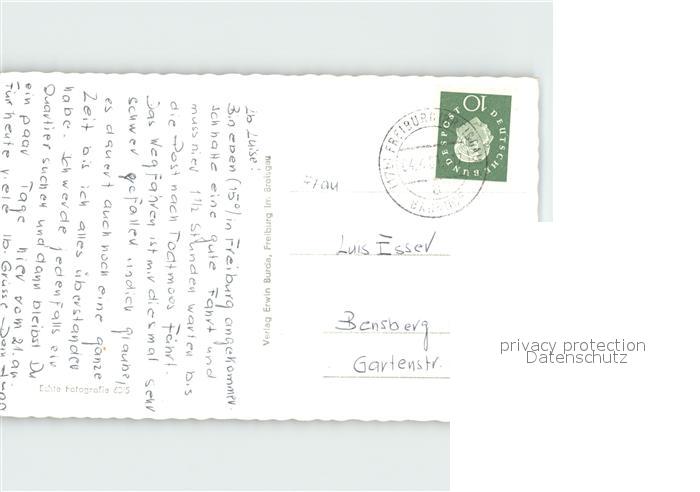 lb. Luise!
Bin eben (15⁰⁰) in Freiburg angekommen.
Ich hatte eine gute Fahrt und
muss nur 1½ Stunden warten bis
die Post nach Todtmoos fährt.
Das Wegfahren ist mir diesmal sehr
schwer gefallen und ich glaube,
es dauert auch noch eine ganze
Zeit bis ich alles überstanden
habe. Ich werde jedenfalls ein
Quartier suchen und dann bleibst Du
ein paar Tage hier vom 21. an.
Für heute viele lb. Grüsse Dein
Echte Fotografie
Verlag Erwin Burda, Freiburg im Breisgau
DEUTSCHE
BUNDESPOST
10
FREIBURG
Frau
Luis Esser
Bensberg
Gartenstr.
privacy protection
Datenschutz